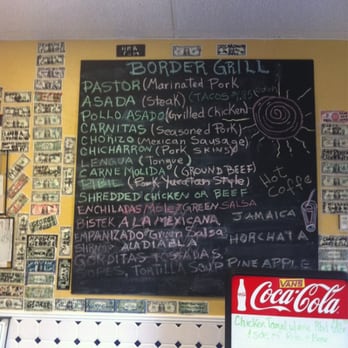 BORDER GRILL
PASTOR (Marinated Pork
ASADA (Steak) (TACOS
POLLO ASADO (Grilled Chicken)
CARNITAS (Seasoned Pork)
CHORIZO (Mexican Sausage)
CHICHARRON (Pork SKINS)
LENGUA (Tongue)
CARNE MOLIDA (GROUND BEEF)
PIBIL (Pork Yucatan Style)
SHREDDED CHICKEN or BEEF
Hot
Coffe
ENCHILADAS MOLE/GREEN SALSA
BISTEK A LA MEXICANA
JAMAICA
EMPANIZADO/Green Salsa
HORCHATA
SHRIMP ALADIABLA
GORDITAS TOSTADAS
PINE APPLE
SOPES, TORTILLA SOUP
VAN'S
Coca-Cola
Chicken